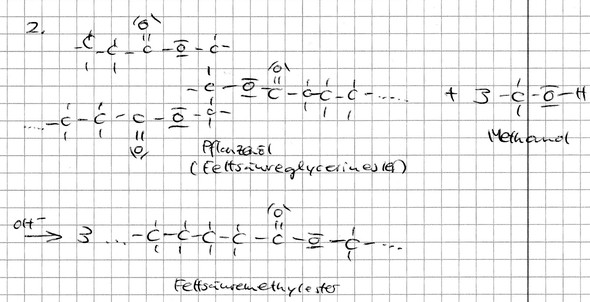 2.
-C-C-C-O-C-
-C-O-C-C-C-C-..... + 3 -C-O-H
....-C-C-C-O-C-
Pflanzenöl Methanol
(Fettsäureglycerinester)
OH⁻
→ 3 ...-C-C-C-C-C-O-C-...
Fettsäuremethylester